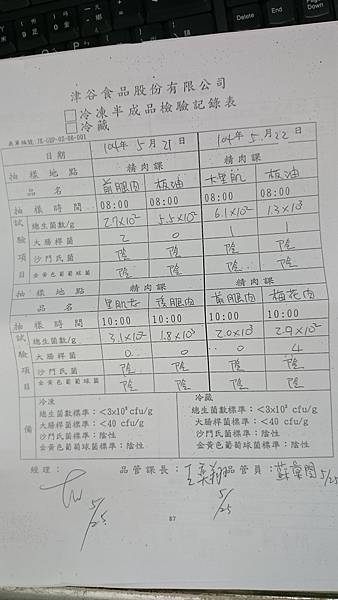 津谷食品股份有限公司
冷凍半成品檢驗記錄表
冷藏
表單編號:JK-GHP-02-08-001
日期 104年5月21日 104年5月22日
抽樣地點 精肉課 精肉課
品名 前腿肉 板油 大里肌 板油
抽樣時間 08:00 08:00 08:00 08:00
試驗項目
總生菌數/g 2.7×10² 5.5×10² 6.1×10² 1.3×10³
大腸桿菌 2 0 1 1
沙門氏菌 陰 陰 陰 陰
金黃色葡萄球菌 陰 陰 陰 陰
抽樣地點 精肉課 精肉課
品名 里肌 後腿肉 前腿肉 梅花肉
抽樣時間 10:00 10:00 10:00 10:00
試驗項目
總生菌數/g 3.1×10² 1.8×10³ 2.0×10³ 2.9×10²
大腸桿菌 0 0 0 4
沙門氏菌 陰 陰 陰 陰
金黃色葡萄球菌 陰 陰 陰 陰
備
冷凍
總生菌數標準：<3x10⁶ cfu/g
大腸桿菌標準：<40 cfu/g
沙門氏菌標準：陰性
金黃色葡萄球菌標準：陰性
冷藏
總生菌數標準：<3x10⁶ cfu/g
大腸桿菌標準：<40 cfu/g
沙門氏菌標準：陰性
金黃色葡萄球菌標準：陰性
經理： 品管課長： 品管員： 5/25
5/25
5/25
87